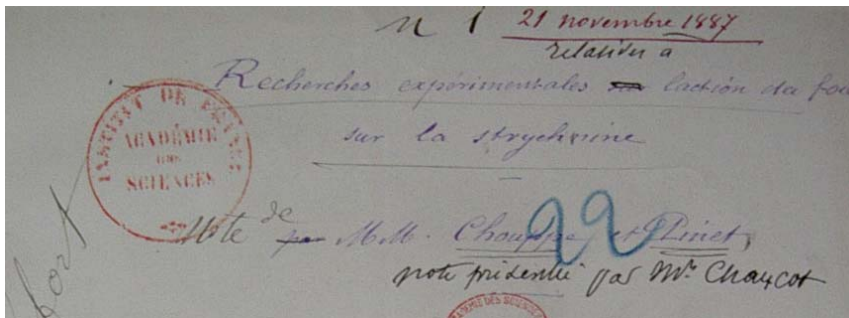 n 1 21 novembre 1887
relatives à
Recherches expérimentales sur l'action du fo
sur la strychnine
INSTITUT DE FRANCE
ACADÉMIE
DES
SCIENCES
Note de par M.M. Chouppe et Pinet,
note présentée par Mr. Charcot
fort
ACADÉMIE DES SCIENCES